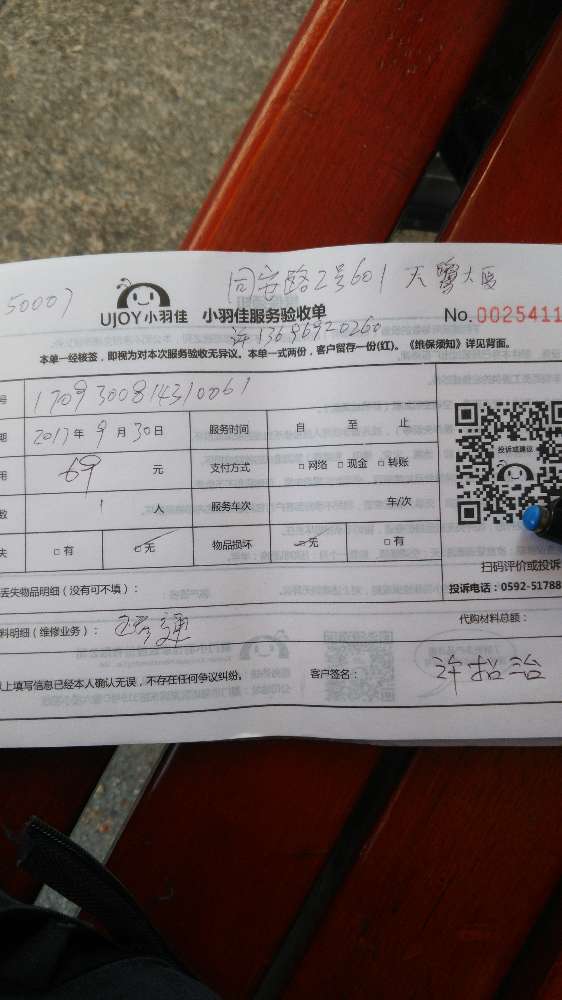 50007
同安路2号601 天鹭大厦
UJOY小羽佳 小羽佳服务验收单
No.0025411
许 13696920260
本单一经核签，即视为对本次服务验收无异议。本单一式两份，客户留存一份(红)。《维保须知》详见背面。
号 1709300814310061
期 2017年9月30日 服务时间 自 至 止
用 69 元 支付方式 □网络 □现金 □转账
数 1 人 服务车次 车/次
失 □有 □无 物品损坏 □无 □有
投诉或建议
扫码评价或投诉
投诉电话：0592-51788
丢失物品明细（没有可不填）：
料明细（维修业务）： 疏通
代购材料总额：
以上填写信息已经本人确认无误，不存在任何争议纠纷。 客户签名：